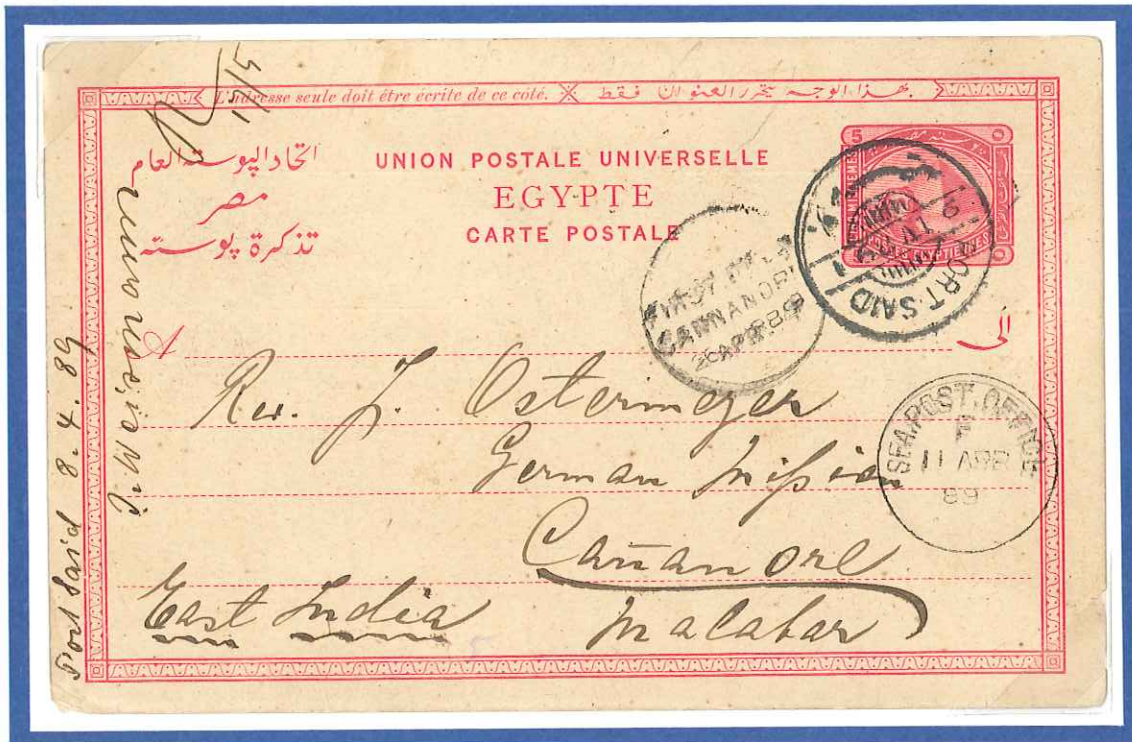 L'adresse seule doit être écrite de ce côté. بهذا الوجه يحرر العنوان فقط
اتحاد البوسته العام
مصر
تذكرة بوسته
UNION POSTALE UNIVERSELLE
EGYPTE
CARTE POSTALE
5
PORT-SAID
CANNANORE
APR 89
SEA POST OFFICE
F
11 APR
89
الى
A
Rev. J. Ostermeyer
German Mission
Cañanore
East India Malabar
Port Said 8. 4. 89